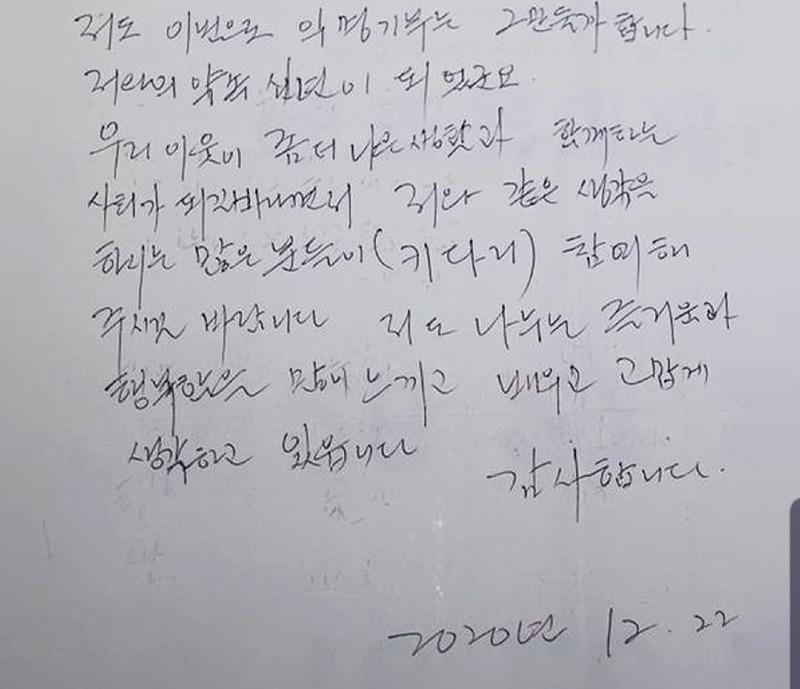 저도 이번으로 익명기부는 그만둘가 합니다.
저와의 약속 십년이 되었군요
우리 이웃이 좀더 나은 생활과 함께하는
사회가 되길바라면서 저와 같은 생각을
하리는 많은 분들이(키다리) 참여해
주시길 바랍니다 저도 나누는 즐거움과
행복함을 많이 느끼고 배우고 고맙게
생각하고 있읍니다
감사합니다.
2020년 12. 22